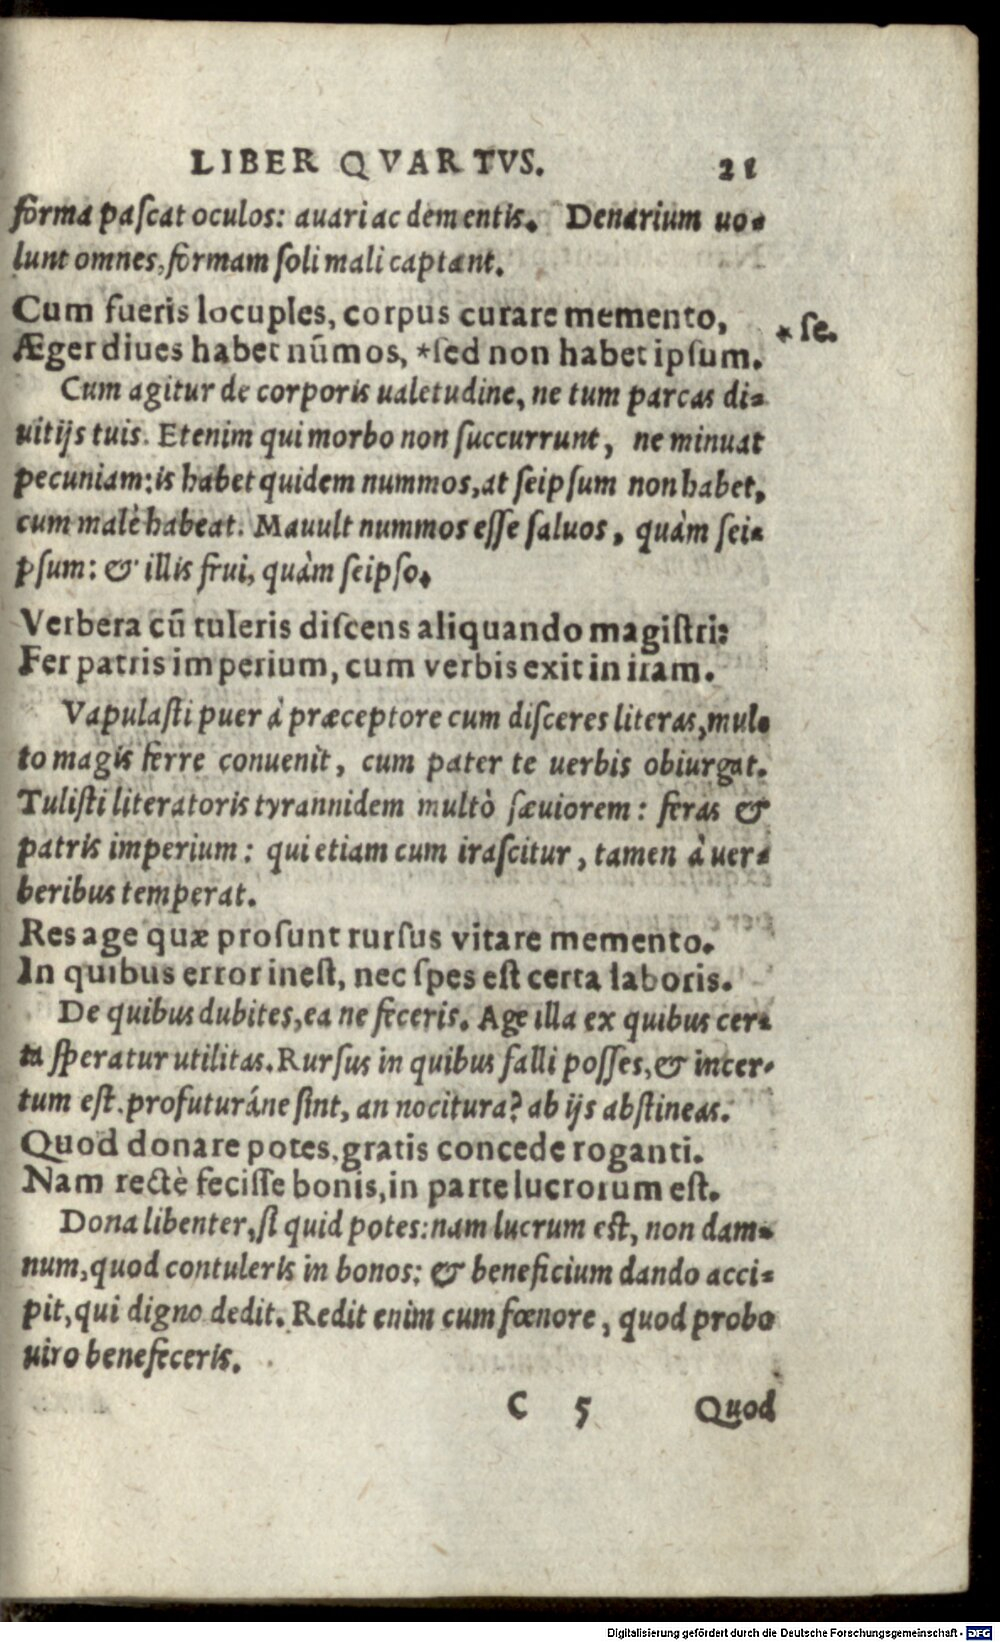 LIBER QVARTVS. 21
forma paſcat oculos: auari ac dementis. Denarium uo-
lunt omnes, formam ſoli mali captant.
Cum fueris locuples, corpus curare memento,
Æger diues habet nũmos, *ſed non habet ipſum. * ſe.
Cum agitur de corporis ualetudine, ne tum parcas di-
uitijs tuis. Etenim qui morbo non ſuccurrunt, ne minuat
pecuniam: is habet quidem nummos, at ſeipſum non habet,
cum malè habeat. Mauult nummos eſſe ſaluos, quàm ſei-
pſum: & illis frui, quàm ſeipſo.
Verbera cũ tuleris diſcens aliquando magiſtri:
Fer patris imperium, cum verbis exit in iram.
Vapulaſti puer à præceptore cum diſceres literas, mul-
to magis ferre conuenit, cum pater te uerbis obiurgat.
Tuliſti literatoris tyrannidem multò ſæuiorem: feras &
patris imperium: qui etiam cum iraſcitur, tamen à uer-
beribus temperat.
Res age quæ proſunt rurſus vitare memento.
In quibus error ineſt, nec ſpes eſt certa laboris.
De quibus dubites, ea ne feceris. Age illa ex quibus cer-
ta ſperatur utilitas. Rurſus in quibus falli poſſes, & incer-
tum eſt. profuturáne ſint, an nocitura? ab ijs abſtineas.
Quod donare potes, gratis concede roganti.
Nam rectè feciſſe bonis, in parte lucrorum eſt.
Dona libenter, ſi quid potes: nam lucrum eſt, non dam-
num, quod contuleris in bonos: & beneficium dando acci-
pit, qui digno dedit. Redit enim cum fœnore, quod probo
uiro benefeceris.
C 5 Quod
Digitalisierung gefördert durch die Deutsche Forschungsgemeinschaft - DFG